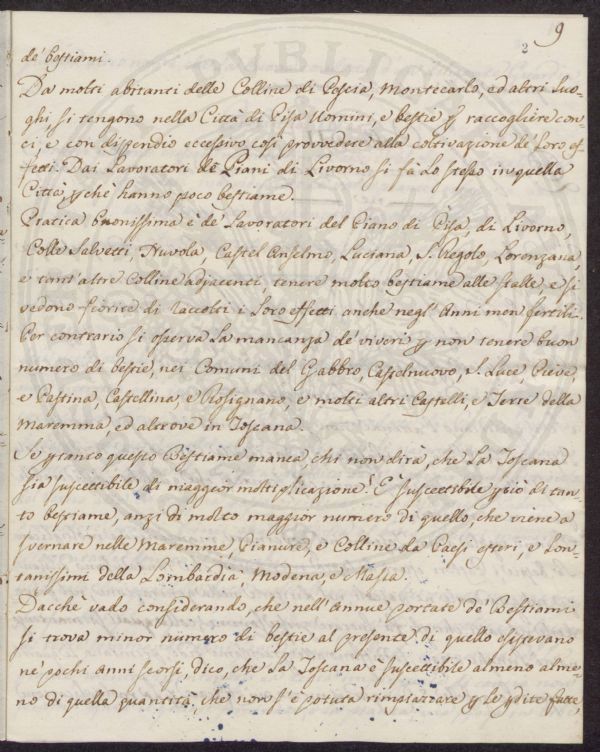 9
2
de' bestiami.
Da molti abitanti delle Colline di Pescia, Montecarlo, ed altri Luo-
ghi si tengono nella Città di Pisa Uomini, e bestie p raccogliere con-
ci, e con dispendio eccessivo così provvedere alla coltivazione de' Loro ef-
fetti. Dai Lavoratori de Piani di Livorno si fà Lo stesso in quella
Città, pchè hanno poco bestiame.
Pratica buonissima è de' Lavoratori del Piano di Pisa, di Livorno,
Colle Salvetti, Nuvola, Castel Anselmo, Luciana, S. Regolo, Lorenzana,
e tant'altre Colline adjacenti, tenere molto bestiame alle stalle, e si
vedono feorire di raccolti i Loro effetti anche negl' Anni men fertili.
Per contrario si osserva La mancanza de' viveri p non tenere buon
numero di bestie, nei Comuni del Gabbro, Castelnuovo, S. Luce, Pieve,
e Pastina, Castellina, e Rosignano, e molti altri Castelli, e Terre della
Maremma, ed altrove in Toscana.
Se ptanto questo Bestiame manca, chi non dirà, che La Toscana
sia suscettibile di maggior moltiplicazione? E' suscettibile pciò di tan-
to bestiame, anzi di molto maggior numero di quello, che viene a
svernare nelle Maremme, Pianure, e Colline da Paesi esteri, e Lon-
tanissimi della Lombardia, Modena, e Massa.
Dacchè vado considerando, che nell'Annue portate de' Bestiami
si trova minor numero di bestie al presente di quello esistevano
ne' pochi Anni scorsi, dico, che La Toscana è suscettibile almeno alme-
no di quella quantità, che non s'è potuta rimpiazzare p le pdite fatte,